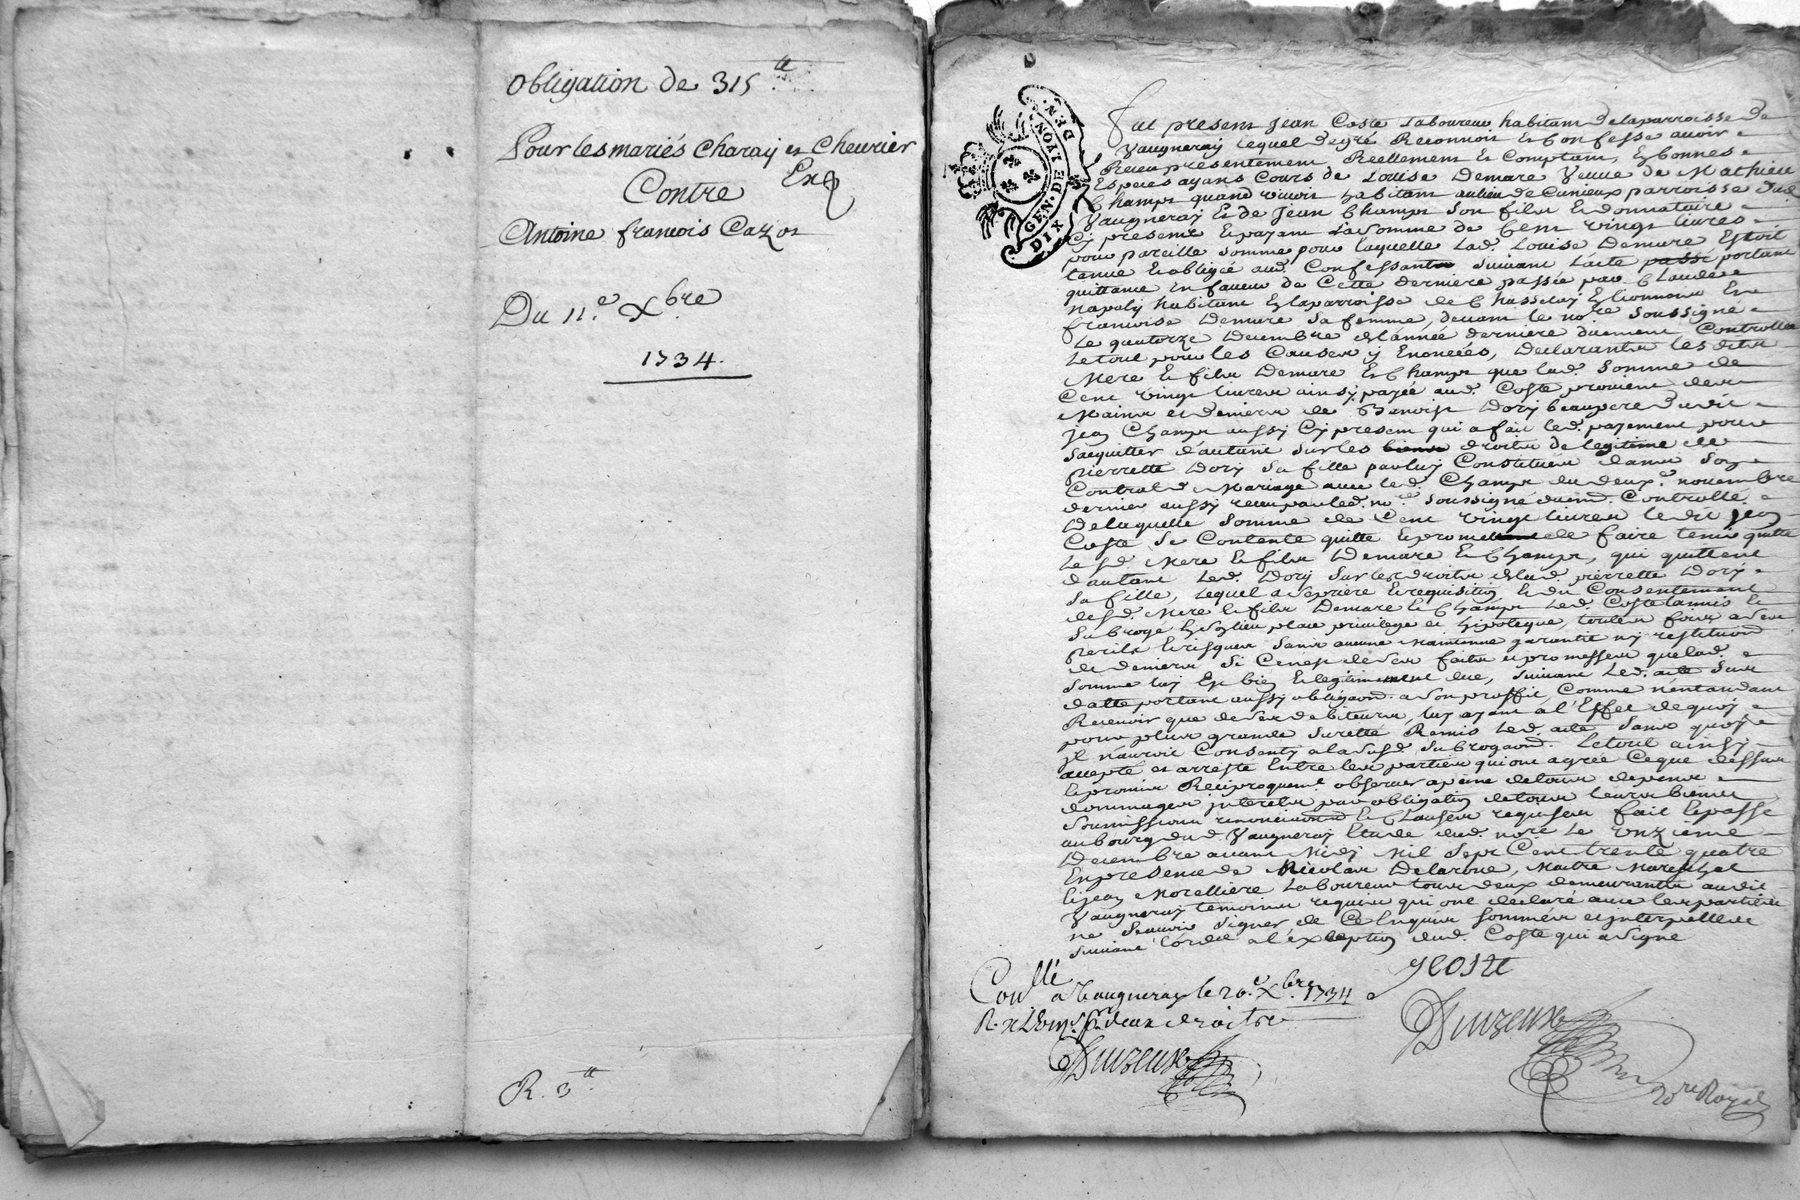 Obligation de 315 tt
Pour les mariés Charay et Chevrier
Exp
Contre
Antoine francois Cazot
Du 11.e Xbre
1734.
R. 3 tt
GEN. DE LYON
DIX DEN.
Fut present Jean Coste Laboureur habitant de la parroisse de
Vaugneray lequel de gré Reconnoit et Confesse avoir
Receu presentement, Reellement et Comptant, En bonnes
Especes ayans Cours de Louise Demare Veuve de Mathieu
Champs quand vivoit habitant au lieu de Cunieux parroisse dud.
Vaugneray Et de Jean Champs Son fils Et donnataire
Cy present Et payant La Somme de Cent vingt livres
pour pareille somme pour laquelle Lad. Louise Demare Estoit
tenue Et obligée aud. Confessant suivant L'acte passé portant
quittance En faveur de Cette derniere passée par Claude
napoly habitant En la parroisse de Chasselay En lionnois Et
francoise Demare Sa femme, devant le no.re soussigné
Le quatorze Decembre de l'année derniere duement Controllée
Le tout pour les Causes y Enoncées, Declarants les dits
Mere et fils Demare Et Champs que lad. Somme de
Cent vingt livres ainsy payée aud. Coste provient des
Mains et deniers de Benoist Dory beaupere dudit
Jean Champs aussy Cy present qui a fait led. payement pour
S'acquitter d'autant sur les biens droits de legitime de
pierrette Dory Sa fille par luy Constitués dans Son
Contrat de Mariage avec led. Champs du deux.e novembre
dernier aussy receu par led. no.re soussigné duem.t Controllé
De laquelle Somme de Cent vingt livres ledit Jean
Coste Se Contente quitte Et promet de faire tenir quitte
Lesd. Mere Et fils Demare Et Champs, qui quittent
d'autant Led. Dory Sur les droits de lad. pierrette Dory
Sa fille, Lequel a la priere Et requisition Et du Consentement
desd. Mere Et fils Demare Et Champs Led. Coste l'a mis Et
Subrogé En Son lieu place privilege et hipoteque, toutes fois a Ses
perils Et risques Sans aucune Maintenue garantie ny restitution
de deniers Si Ce n'est de Ses faits et promesses que lad.
Somme luy Est bien Et legitimement due, Suivant Led. acte Sus
datté portant aussy obligaon. a Son proffit, Comme n'entendant
Recevoir que de Ses debiteurs, luy ayant a l'Effet de quoy
pour plus grande Surette Remis Led. acte Sans quoy
Il n'auroit Consenty a la Susd. Subrogaon. Le tout ainsy
accepté et arresté Entre les parties qui ont agreé Ce que dessus
Et promis Reciproquem.t observer a peine de tous depens
dommages interets par obligation de tous leurs biens
Soumissions renonciaons Et Clauses requises fait Et passé
au bourg dud. Vaugneray Etude dud. no.re Le onzieme
Decembre avant Midy Mil Sept Cent trente quatre
En presence de Nicolas Delarone, Maitre Mareschal
Et Jean Morelliere Laboureur tous deux demeurants audit
Vaugneray temoins requis qui ont declaré avec les parties
ne Scavoir Signer de Ce Enquis Sommés et Interpellés
Suivant l'ord.ce a l'exception dud. Coste qui a Signé
JCOSTE
Con.llé
a Vaugneray le 20.e Xbre. 1734
Duvzeux
Duvzeux
No.re Royal